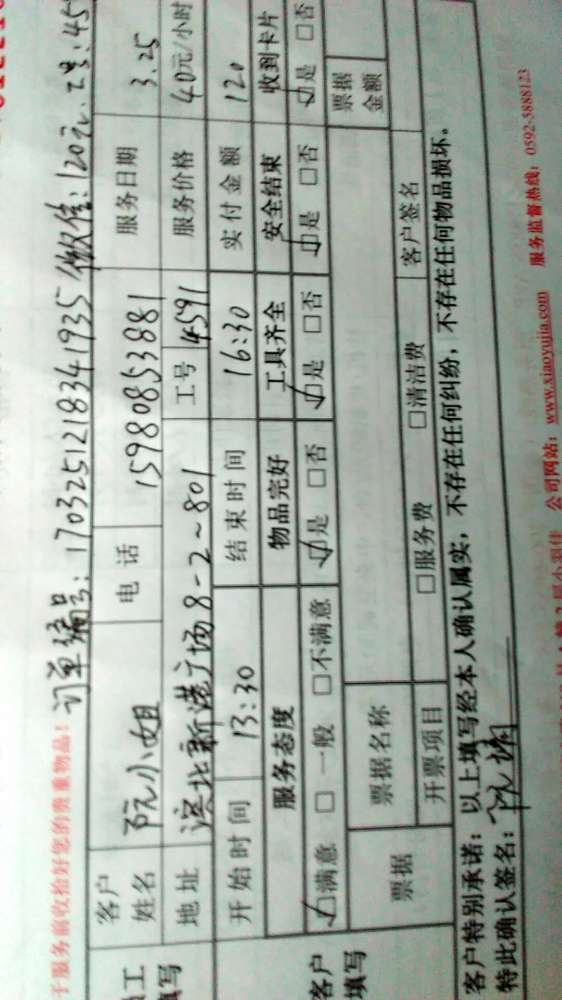 于服务前收拾好您的贵重物品！ 订单编号：17032512183419 35 微信：120元、工号：45
员工填写
客户姓名 阮小姐 电话 15980853881 服务日期 3.25
地址 滨北新港广场8-2~801 工号 4591 服务价格 40元/小时
开始时间 13:30 结束时间 16:30 实付金额 120
客户填写
服务态度 物品完好 工具齐全 安全结束 收到卡片
☑满意 □一般 □不满意 ☑是 □否 ☑是 □否 ☑是 □否 ☑是 □否
票据 票据名称 票据金额
开票项目 □服务费 □清洁费 客户签名
客户特别承诺：以上填写经本人确认属实，不存在任何纠纷，不存在任何物品损坏。
特此确认签名：
公司网站：www.xiaoyujia.com 服务监督热线：0592-5888123